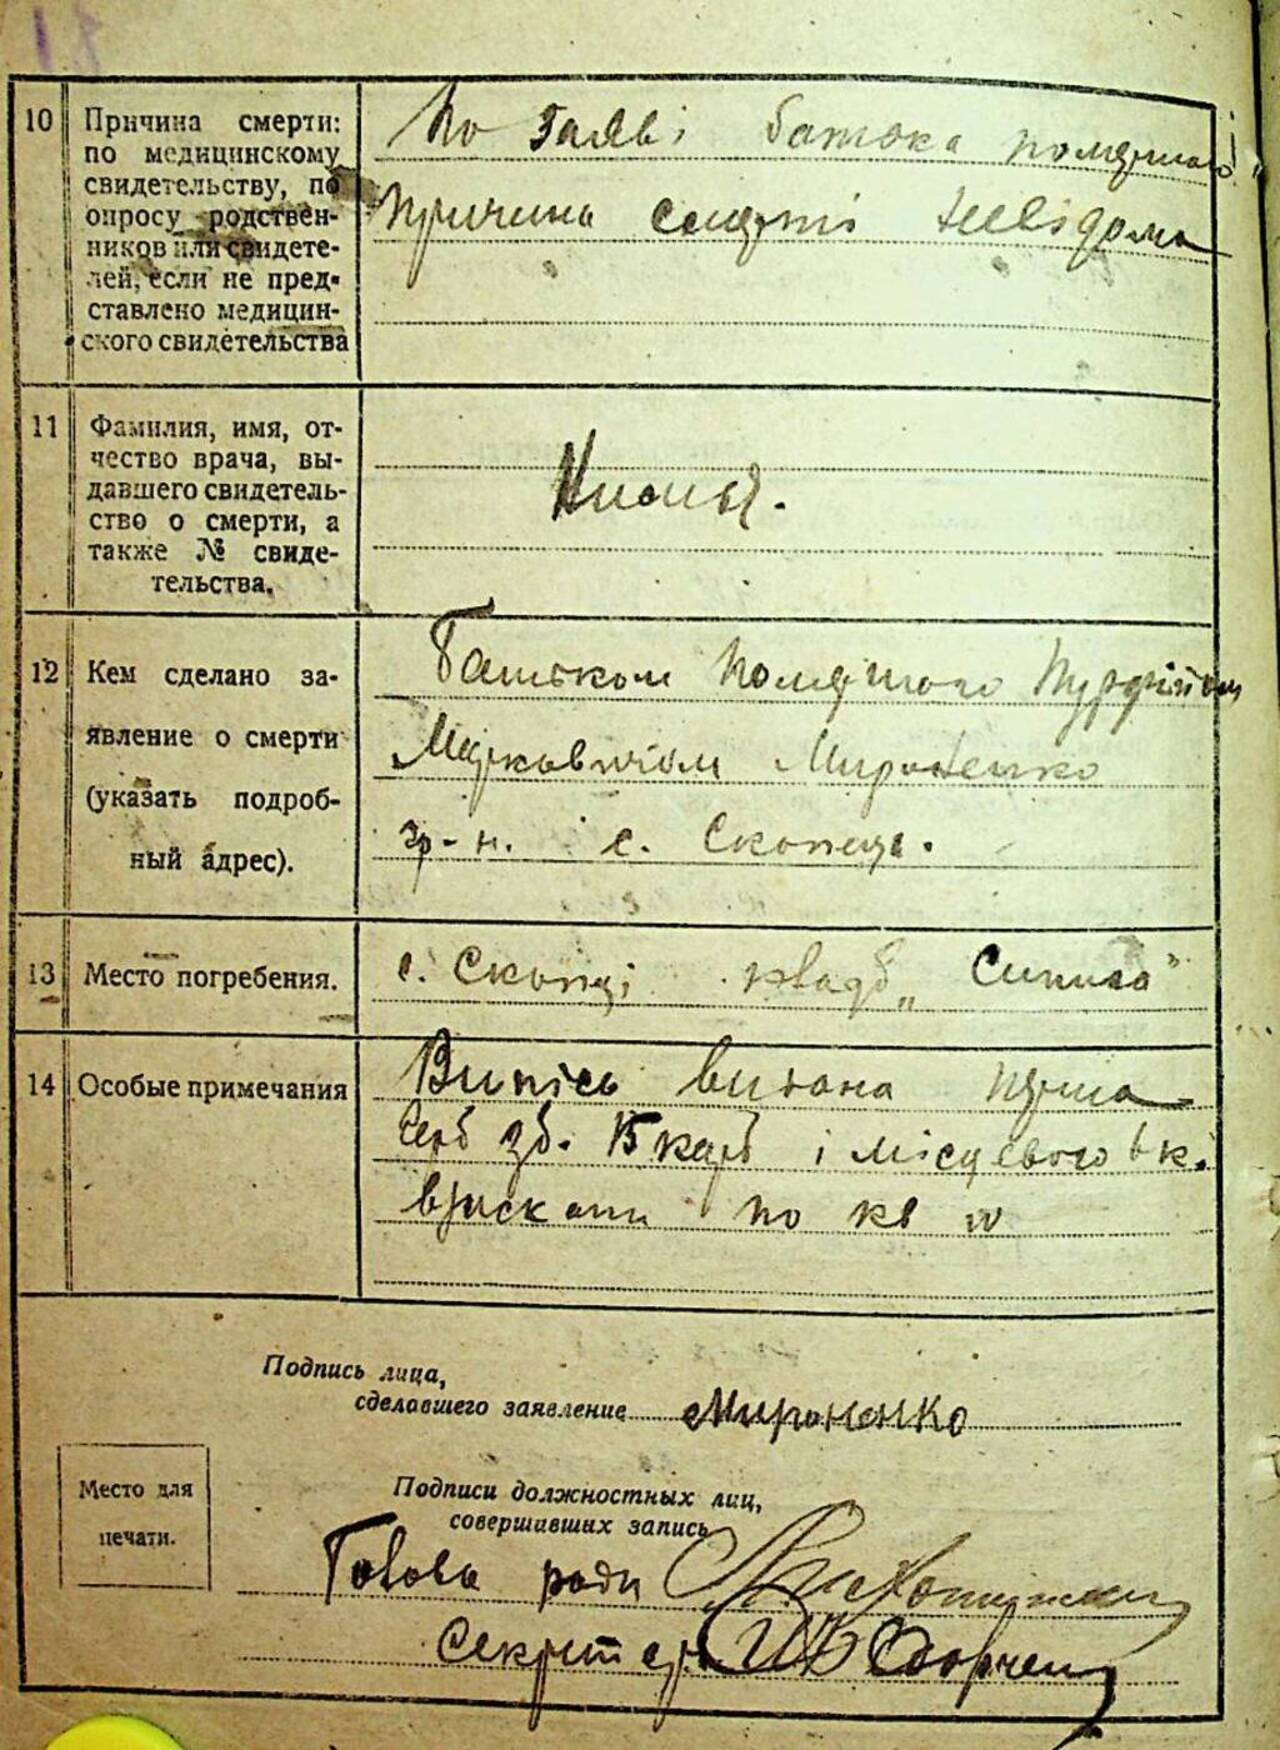 10 Причина смерти:
по медицинскому
свидетельству, по
опросу родствен-
ников или свидете-
лей, если не пред-
ставлено медицин-
ского свидетельства
По заяві батька помершого
причина смерті невідома
11 Фамилия, имя, от-
чество врача, вы-
давшего свидетель-
ство о смерти, а
также № свиде-
тельства.
Немає.
12 Кем сделано за-
явление о смерти
(указать подроб-
ный адрес).
Батьком помершого
Марковичом Мироненко
гр-н. с. Скопці.
13 Место погребения.
с. Скопці кладб „
14 Особые примечания
Випісь видана перша
зб. 15 карб і місцевого
по кв
Подпись лица,
сделавшего заявление Мироненко
Место для
печати.
Подписи должностных лиц,
совершивших запись
Голова ради
Секретар